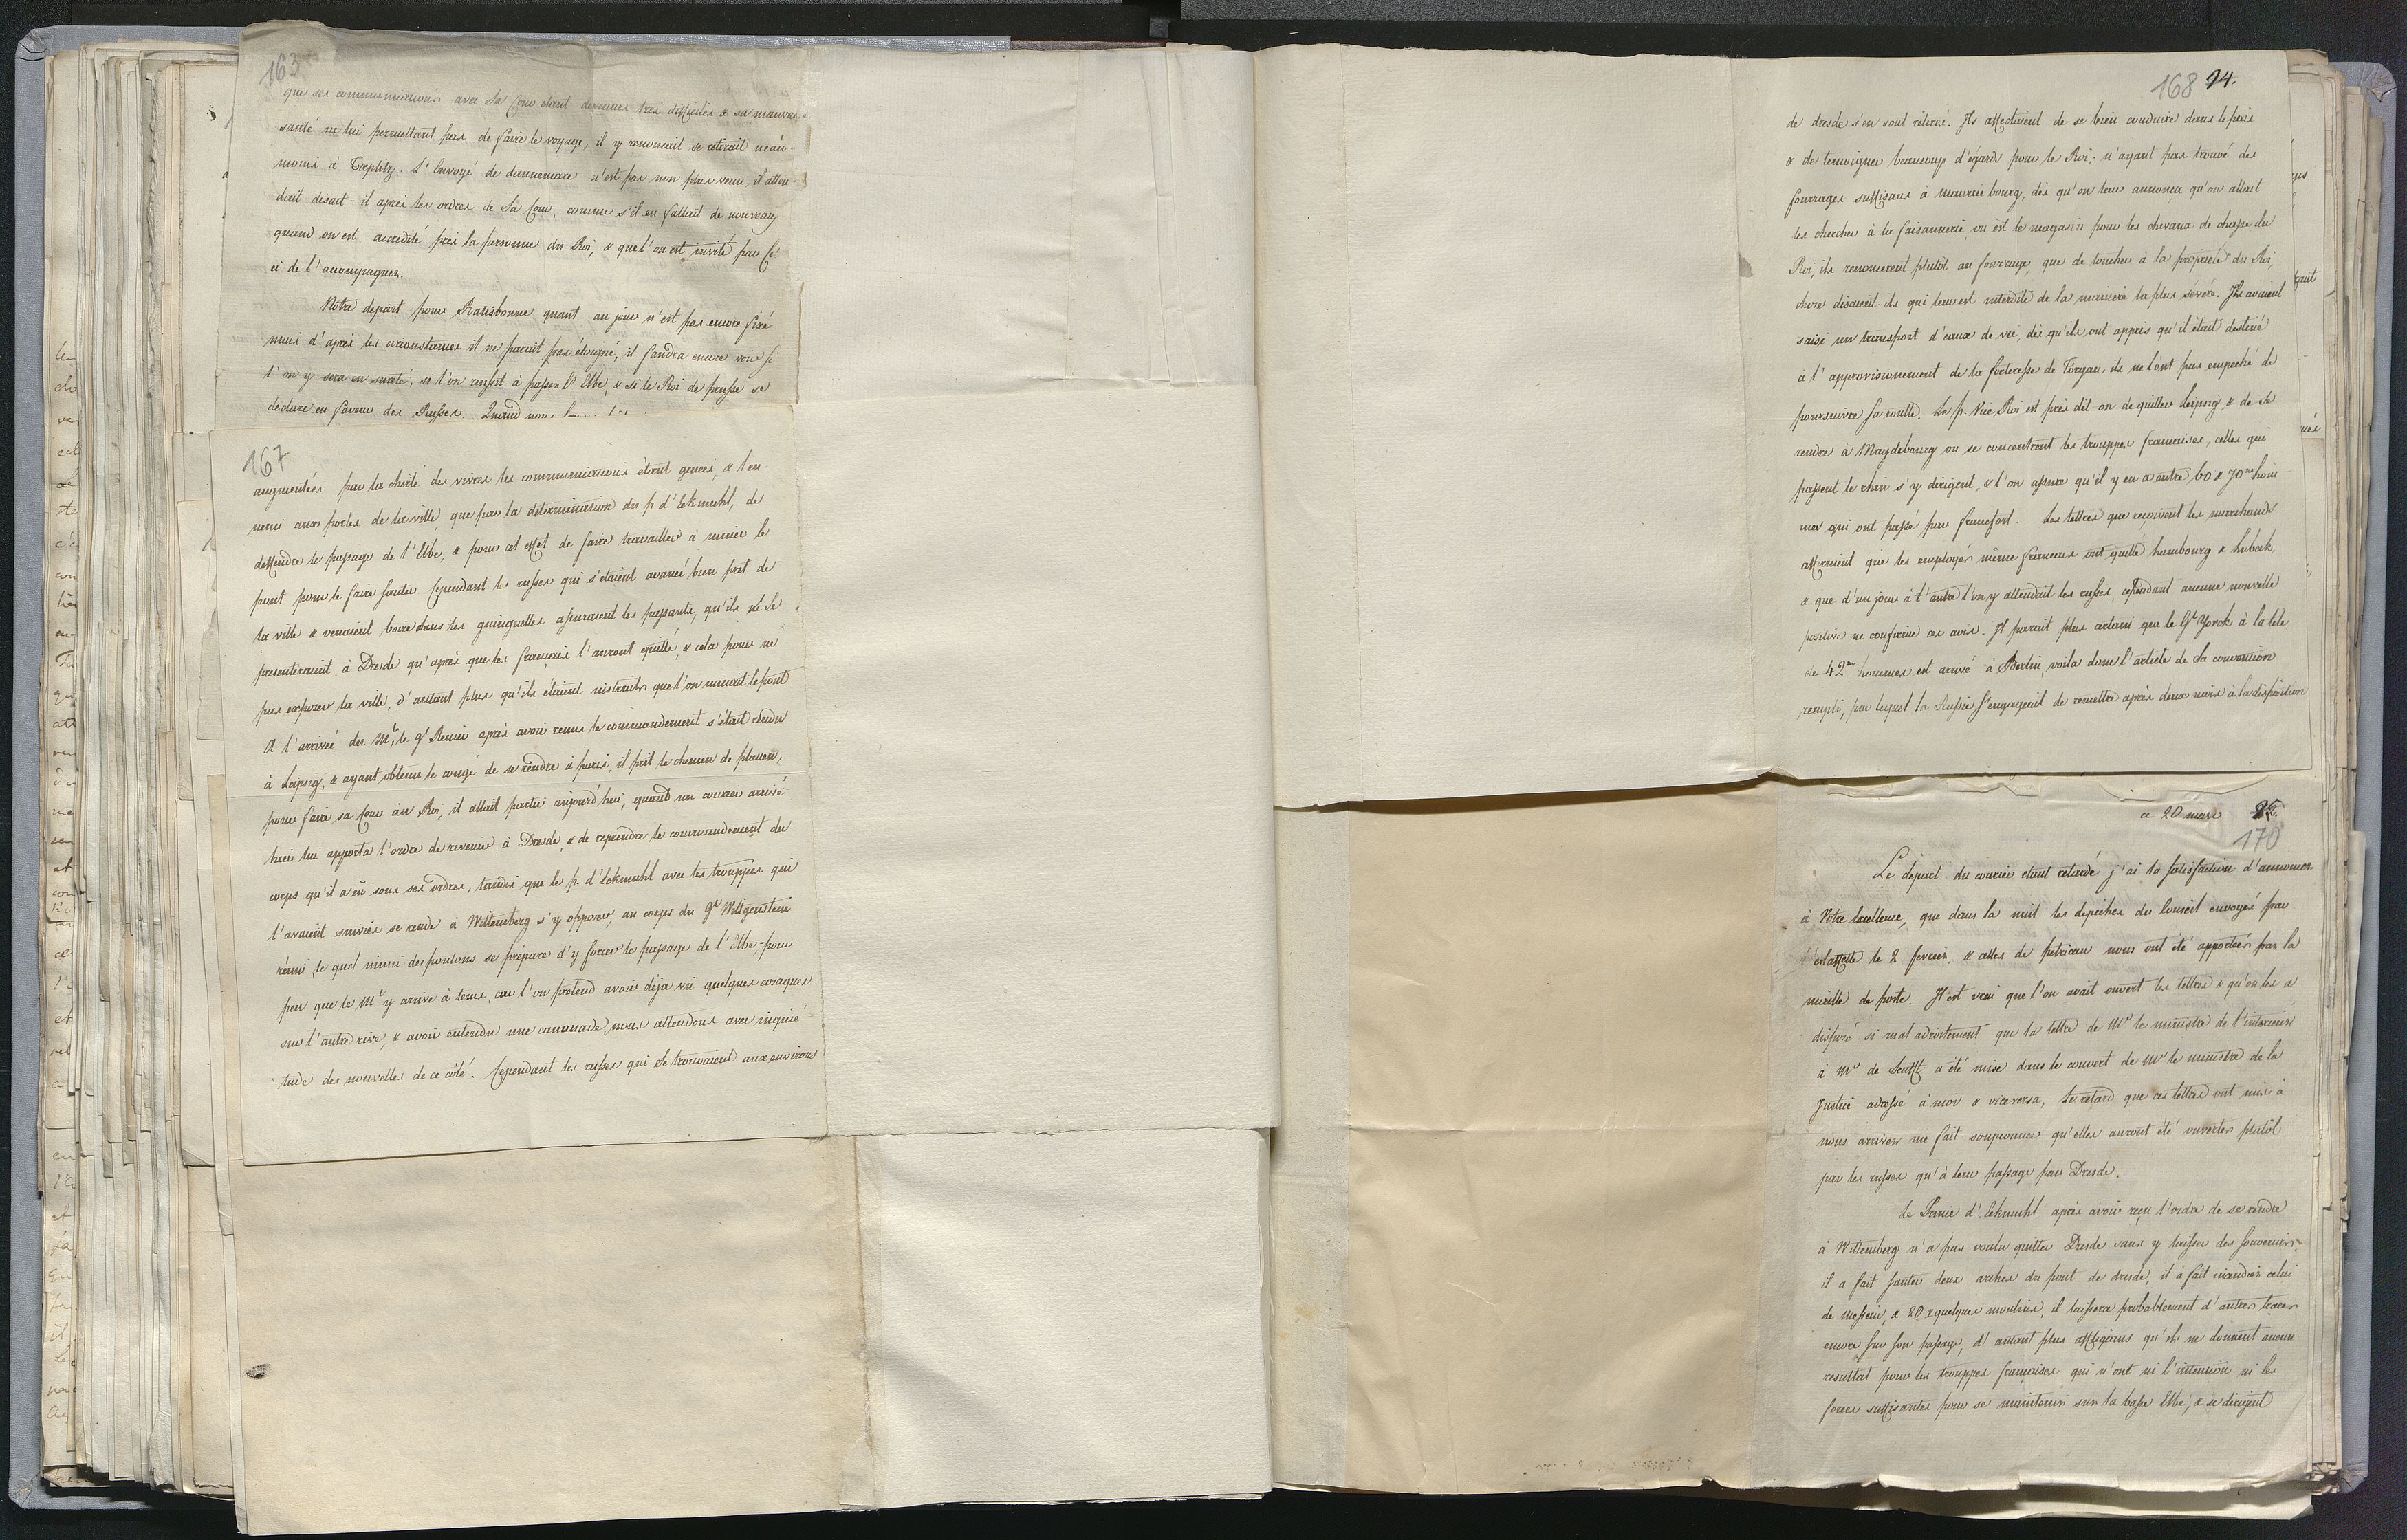 163
que ses communications avec Sa Cour etant devenues tres difficiles & sa mauvai-
santé ne lui permettant pas de faire le voyage, il y renoncait se retirait néan-
moins à Töplitz. L'Envoyé de dannemarc n'est pas non plus venu, il atten-
dait disait-il après les ordres de Sa Cour, comme s'il en fallait de nouveaux
quand on est accredité près la personne du Roi, & que l'on est invité par Ce-
ci de l'accompagner.
Nôtre depart pour Ratisbonne quant au jour n'est pas encore fixé
mais d'après les circonstances il ne parait pas éloigné, il faudra encore voir si
l'on y sera en sureté, si l'on reussit à passer l'Elbe, & si le Roi de prusse se
déclare en faveur des Russes. Quand nous
167
augmentées par la cherté des vivres les communications étant genées, & l'en-
nemi aux portes de la ville, que par la determination du p. d'Eckmuhl, de
deffendre le passage de l'Elbe, & pour cet effet de faire travailler à miner le
pont pour le faire sauter. Cependant les russes qui s'etaient avancé bien prêt de
la ville & venaient boire dans les guinguettes assuraient les passants, qu'ils ne se
presenteraient à Dresde qu'après que les français l'auront quitté, & cela pour ne
pas exposer la ville, d'autant plus qu'ils étaient instruits que l'on minait le pont.
A l'arrivée du Ml, le gl Renier après avoir remis le commandement s'était rendu
à Leipsig, & ayant obtenu le congé de se rendre à paris, il prit le chemin de plauen,
pour faire sa Cour au Roi, il allait partir aujourd'hui, quand un courrier arrivé
hier lui apporta l'ordre de revenir à Dresde, & de reprendre le commandement du
corps qu'il a eû sous ses ordres, tandis que le p. d'Eckmuhl avec les trouppes qui
l'avaient suivies se rende à Wittemberg s'y opposer, au corps du Gl Wittgenstein
réuni, le quel muni des pontons se prépare d'y forcer le passage de l'Elbe, pour
peu que le Ml y arrive à tems, car l'on pretend avoir déja vû quelques cosaques
sur l'autre rive, & avoir entendu une canonade, nous attendons avec inquié-
tude des nouvelles de ce côté. Cependant les russes qui se trouvaient aux environs
168 94.
de dresde s'en sont retirés. Ils affectaient de se bien conduire dans le païs
& de temoigner beaucoup d'égards pour le Roi; n'ayant pas trouvé des
fourrages suffisans à mauricebourg, dès qu'on leur annonça qu'on allait
les chercher à la faisannerie, où est le magasin pour les chevaux de chasse du
Roi, ils renoncerent plutôt au fourrage, que de toucher à la propriété du Roi,
chose disaient-ils qui leur est interdite de la maniere la plus sévère. Ils avaient
saisi un transport d'eaux de vie, dès qu'ils ont appris qu'il était destiné
à l'approvisionement de la forteresse de Torgau, ils ne l'ont pas empeché de
poursuivre sa route. Le p. Vice, Roi est près dit-on de quitter Leipsig & de se
rendre à Magdebourg où se concentrent les trouppes françaises, celles qui
passent le rhin s'y dirigent, & l'on assure qu'il y en a entre 60 & 70m hom-
mes qui ont passé par francfort. Les lettres que reçoivent les marchands
affirment que les employés même francais ont quitté hambourg & Lubeck,
& que d'un jour à l'autre l'on y attendait les russes, cependant aucune nouvelle
positive ne confirme ces avis. Il parait plus certain que le Gl Yorck à la tête
de 42m hommes est arrivé à Berlin, voila donc l'article de la convention
rempli, par lequel la Russie s'engageait de remettre après deux mois à la disposition
ce 20 mars 95.
170
Le départ du courrier etant retardé j'ai la satisfaction d'annoncer
à Votre Excellence, que dans la nuit les depêches du Conseil envoyés par
l'estaffette le 2 fevrier, & celles de petricau nous ont été apportées par la
malle de poste. Il est vrai que l'on avait ouvert les lettres & qu'on les a
disposé si mal adroitement que la lettre de Mr le ministre de l'interieur
à Mr de Senfft a été mise dans le couvert de Mr le ministre de la
Justice adressé à moi & viceversa, le retard que ces lettres ont mis à
nous arriver me fait soupçonner qu'elles auront été ouvertes plutôt
par les russes qu'à leur passage par Dresde.
Le Prince d'Eckmuhl après avoir reçu l'ordre de se rendre
à Wittemberg n'a pas voulu quitter Dresde sans y laisser des souvenirs,
il a fait sauter deux arches du pont de dresde, il à fait incendier celui
de meissen, & 20 & quelques moulins, il laissera probablement d'autres traces
encore sur son passage, d'autant plus affligeans qu'ils ne donnent aucun
resultat pour les trouppes françaises qui n'ont ni l'intention ni les
forces suffisantes pour se maintenir sur la basse Elbe, & se dirigent